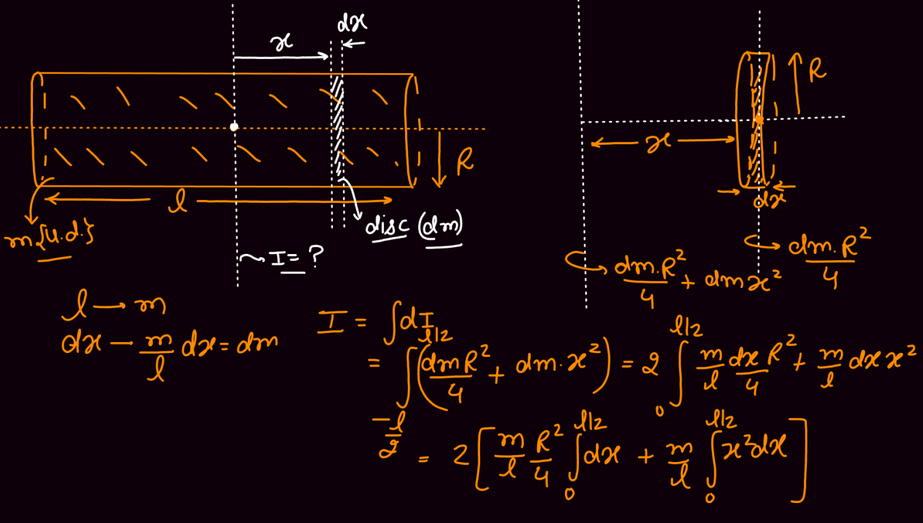 x
dx
R
l
m{u.d.}
disc (dm)
I = ?
R
x
dx
dm.R²/4 + dm x²
dm.R²/4
l → m
dx - m/l dx = dm
I = ∫dI
= ∫_{-l/2}^{l/2} (dmR²/4 + dm.x²) = 2 ∫_0^{l/2} m/l dx R²/4 + m/l dx x²
= 2[m/l R²/4 ∫_0^{l/2} dx + m/l ∫_0^{l/2} x²dx]